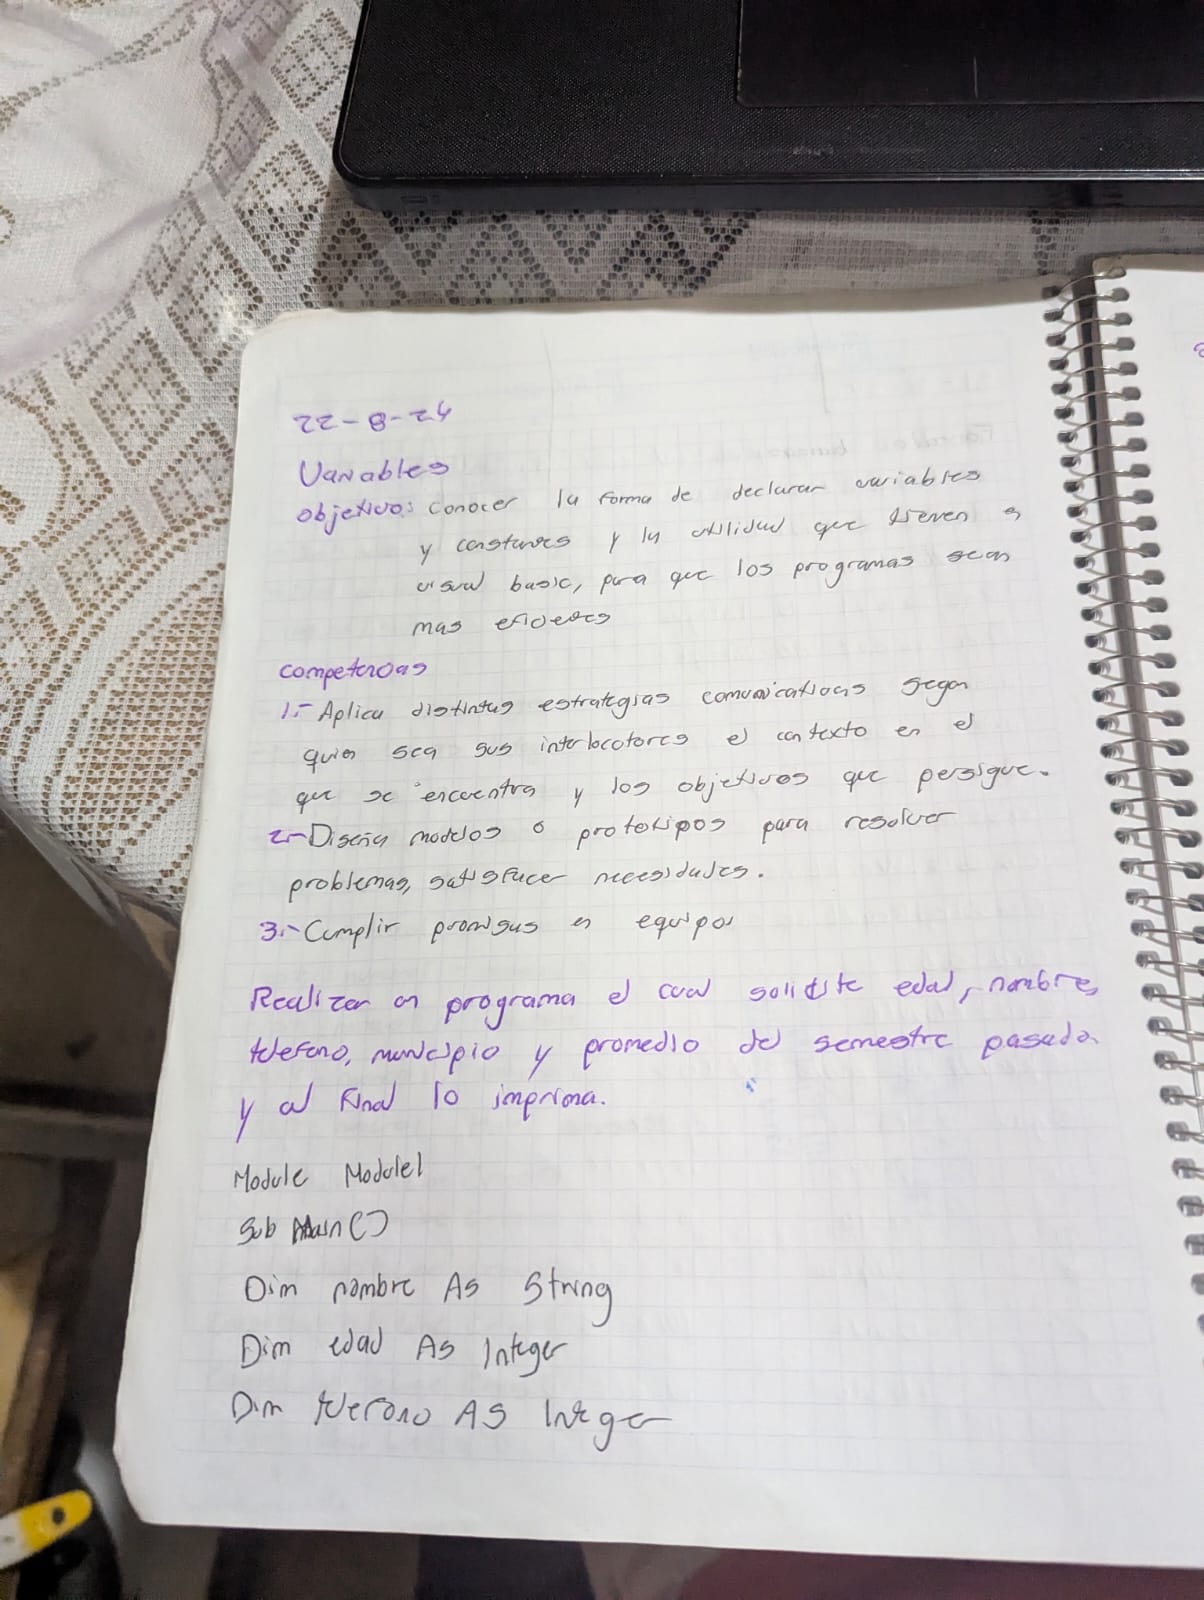 22-8-24
Variables
objetivo: conocer la forma de declarar variables
y constantes y la utilidad que tienen en
visual basic, para que los programas sean
mas eficientes
competencias
1.- Aplica distintas estrategias comunicativas segun
quien sea sus interlocutores el contexto en el
que se encuentra y los objetivos que persigue.
2.- Diseña modelos o prototipos para resolver
problemas, satisfacer necesidades.
3.- Cumplir en equipos
Realizar un programa el cual solicite edad, nombre,
telefono, municipio y promedio del semestre pasado.
y al final lo imprima.
Module Module1
Sub Main()
Dim nombre As String
Dim edad As Integer
Dim telefono As Integer